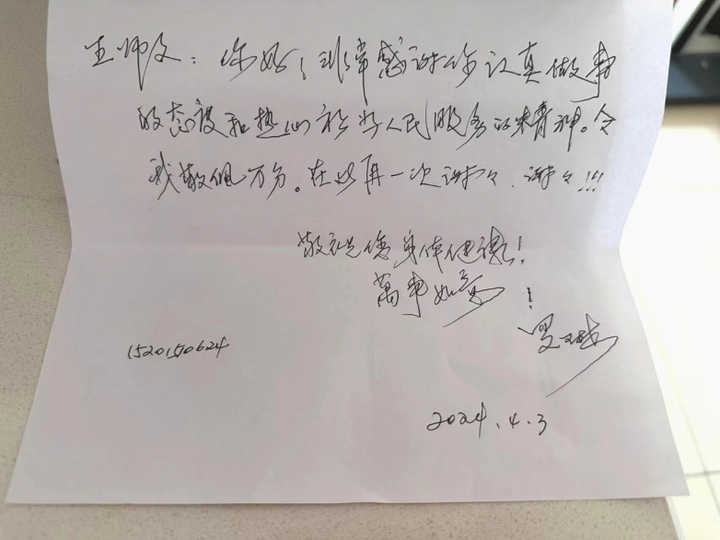 王师父：你好！非常感谢你认真做事
的态度和热心和为人民服务的精神。令
我敬佩万分。在此再一次谢々、谢々!!!
敬祝您身体健康！
萬事如意！
罗
1520150624
2024.4.3